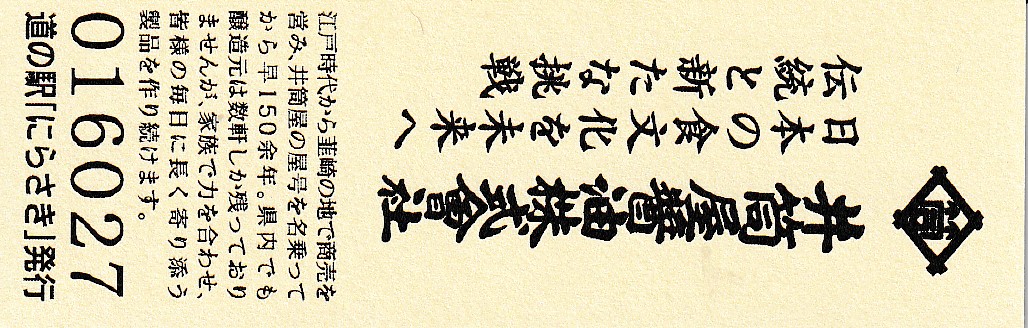 筒
井筒屋醤油株式會社
日本の食文化を未来へ
伝統と新たな挑戦
江戸時代から韮崎の地で商売を
営み、井筒屋の屋号を名乗って
から早150余年。県内でも
醸造元は数軒しか残っており
ませんが、家族で力を合わせ、
皆様の毎日に長く寄り添う
製品を作り続けます。
016027
道の駅「にらさき」発行